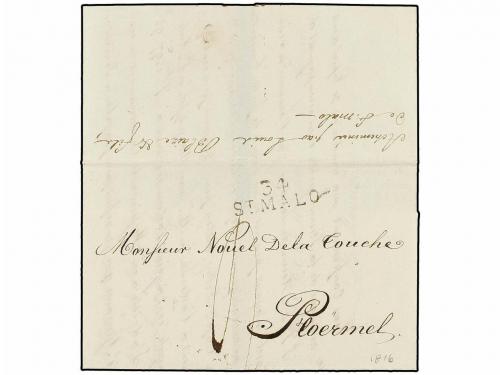 Acheminé par Louis Blaize & fils,
De St. malo —
34
ST MALO
Monsieur Nouel Dela Touche
Ploermel.
1816